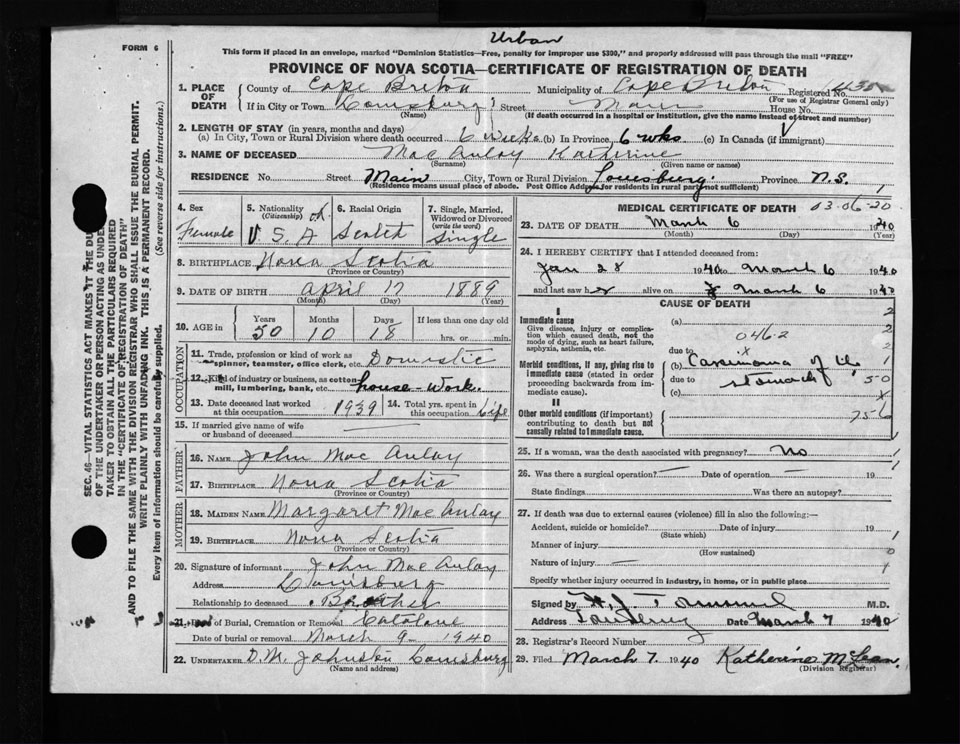 FORM 6
Urban
This form if placed in an envelope, marked "Dominion Statistics—Free, penalty for improper use $300," and properly addressed will pass through the mail "FREE"
PROVINCE OF NOVA SCOTIA—CERTIFICATE OF REGISTRATION OF DEATH
1. PLACE OF DEATH County of Cape Breton Municipality of Cape Breton Registered No.
(For use of Registrar General only)
If in City or Town Louisburg Street Main House No.
(Name) (If death occurred in a hospital or institution, give the name instead of street and number)
2. LENGTH OF STAY (in years, months and days)
(a) In City, Town or Rural Division where death occurred 6 weeks (b) In Province 6 wks (c) In Canada (if immigrant)
3. NAME OF DECEASED MacAulay Katherine
(Surname) (Given name or names)
RESIDENCE No. Street Main City, Town or Rural Division Louisburg Province N.S.
(Residence means usual place of abode. Post Office Address for residents in rural parts not sufficient)
4. Sex Female
5. Nationality (Citizenship) U S A
6. Racial Origin Scotch
7. Single, Married, Widowed or Divorced (write the word) Single
8. BIRTHPLACE Nova Scotia
(Province or Country)
9. DATE OF BIRTH April 17 1889
(Month) (Day) (Year)
10. AGE in Years 50 Months 10 Days 18 If less than one day old hrs. or min.
OCCUPATION
11. Trade, profession or kind of work as spinner, teamster, office clerk, etc. Domestic
12. Kind of industry or business, as cotton mill, lumbering, bank, etc. house-work.
13. Date deceased last worked at this occupation 1939
14. Total yrs. spent in this occupation Life
15. If married give name of wife or husband of deceased
FATHER
16. NAME John Mac Aulay
17. BIRTHPLACE Nova Scotia
(Province or Country)
MOTHER
18. MAIDEN NAME Margaret Mac Aulay
19. BIRTHPLACE Nova Scotia
(Province or Country)
20. Signature of informant John Mac Aulay
Address Louisburg
Relationship to deceased Brother
21. Place of Burial, Cremation or Removal Catalone
Date of burial or removal March 9 1940
22. UNDERTAKER D.M. Johnston Louisburg
(Name and address)
MEDICAL CERTIFICATE OF DEATH 03-06-20
23. DATE OF DEATH March 6 1940
(Month) (Day) (Year)
24. I HEREBY CERTIFY that I attended deceased from:
Jan 28 1940 to March 6 1940
and last saw her alive on March 6 1940
CAUSE OF DEATH
I
Immediate cause
Give disease, injury or complication which caused death, not the mode of dying, such as heart failure, asphyxia, asthenia, etc.
(a)
046-2
due to
Morbid conditions, if any, giving rise to immediate cause (stated in order proceeding backwards from immediate cause).
(b) Carcinoma of the
due to stomach
(c)
50
75-6
II
Other morbid conditions (if important) contributing to death but not causally related to immediate cause.
25. If a woman, was the death associated with pregnancy? No
26. Was there a surgical operation? — Date of operation — 19
State findings Was there an autopsy?
27. If death was due to external causes (violence) fill in also the following:—
Accident, suicide or homicide? Date of injury 19
(State which)
Manner of injury
(How sustained)
Nature of injury —
Specify whether injury occurred in industry, in home, or in public place
Signed by M.D.
Address Date March 7 1940
28. Registrar's Record Number
29. Filed March 7. 1940 Katherine McLean.
(Division Registrar)
SEC. 46—VITAL STATISTICS ACT MAKES IT THE
OF THE UNDERTAKER OR PERSON ACTING AS
TAKER TO OBTAIN ALL THE PARTICULARS REQUIRED
IN THE "CERTIFICATE OF REGISTRATION OF DEATH"
AND TO FILE THE SAME WITH THE DIVISION REGISTRAR WHO SHALL ISSUE THE BURIAL PERMIT.
WRITE PLAINLY WITH UNFADING INK. THIS IS A PERMANENT RECORD.
Every item of information should be carefully supplied. (See reverse side for instructions.)